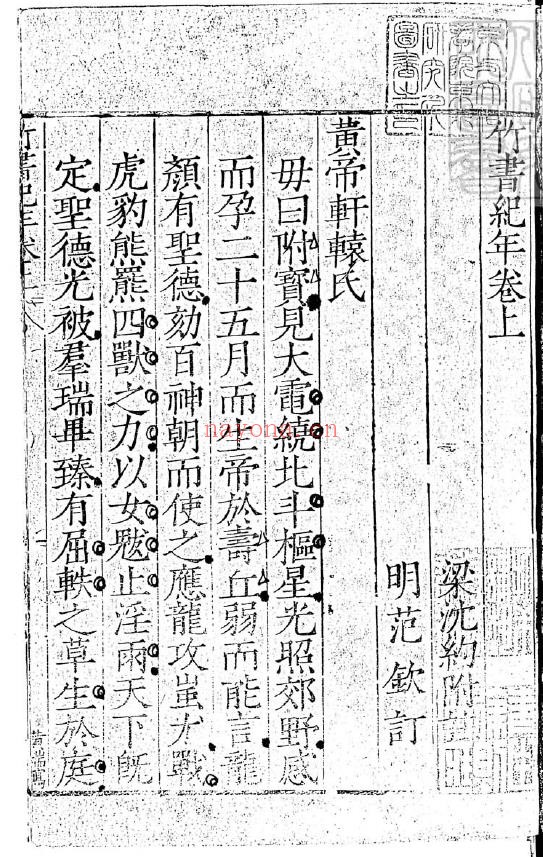 竹書紀年卷上
梁沈約附註
明范欽訂
黃帝軒轅氏
毋曰附寶見大電繞北斗樞星光照郊野感
而孕二十五月而生帝於壽丘弱而能言龍
顏有聖德劾百神朝而使之應龍攻蚩尤戰
虎豹熊羆四獸之力以女魃止淫雨天下旣
定聖德光被羣瑞畢臻有屈軼之草生於庭
竹書紀年卷上
nayong.cn